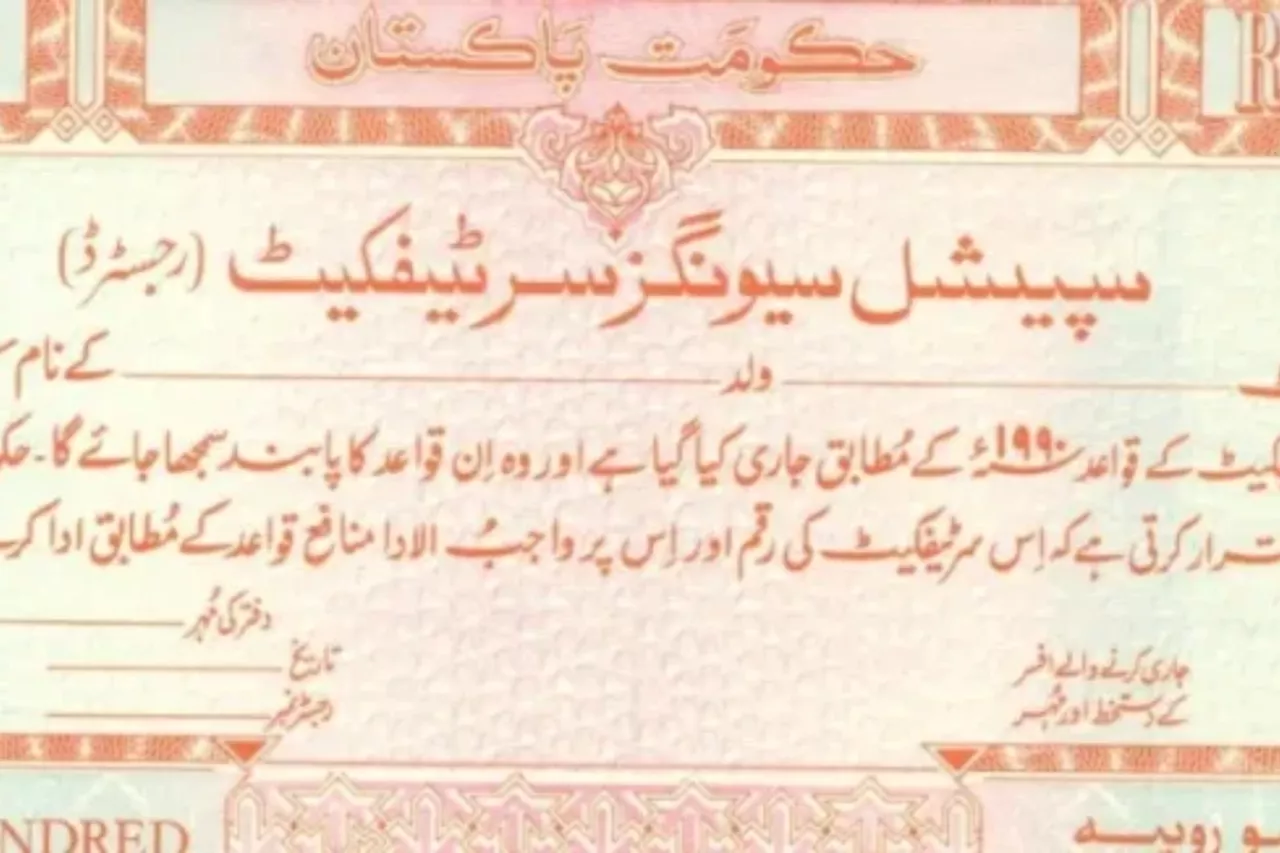 حکومَت پَاکستان
R
سپیشل سیونگز سرٹیفکیٹ (رجسٹرڈ)
ولد کے نام
کے قواعد ۱۹۹۰ء کے مُطابق جاری کیا گیا ہے اور وہ اِن قواعد کا پابند سمجھا جائے گا۔
کرتی ہے کہ اِس سرٹیفکیٹ کی رقم اور اِس پر واجبُ الادا منافع قواعد کے مُطابق ادا
دفتر کی مُہر
تاریخ
رجسٹر نمبر
جاری کرنے والے افسر
کے دستخط اور مُہر
NDRED
روپیہ